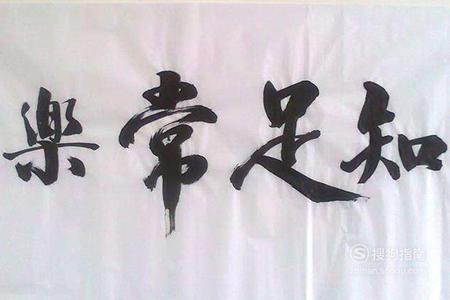 知足常樂
搜狗指南